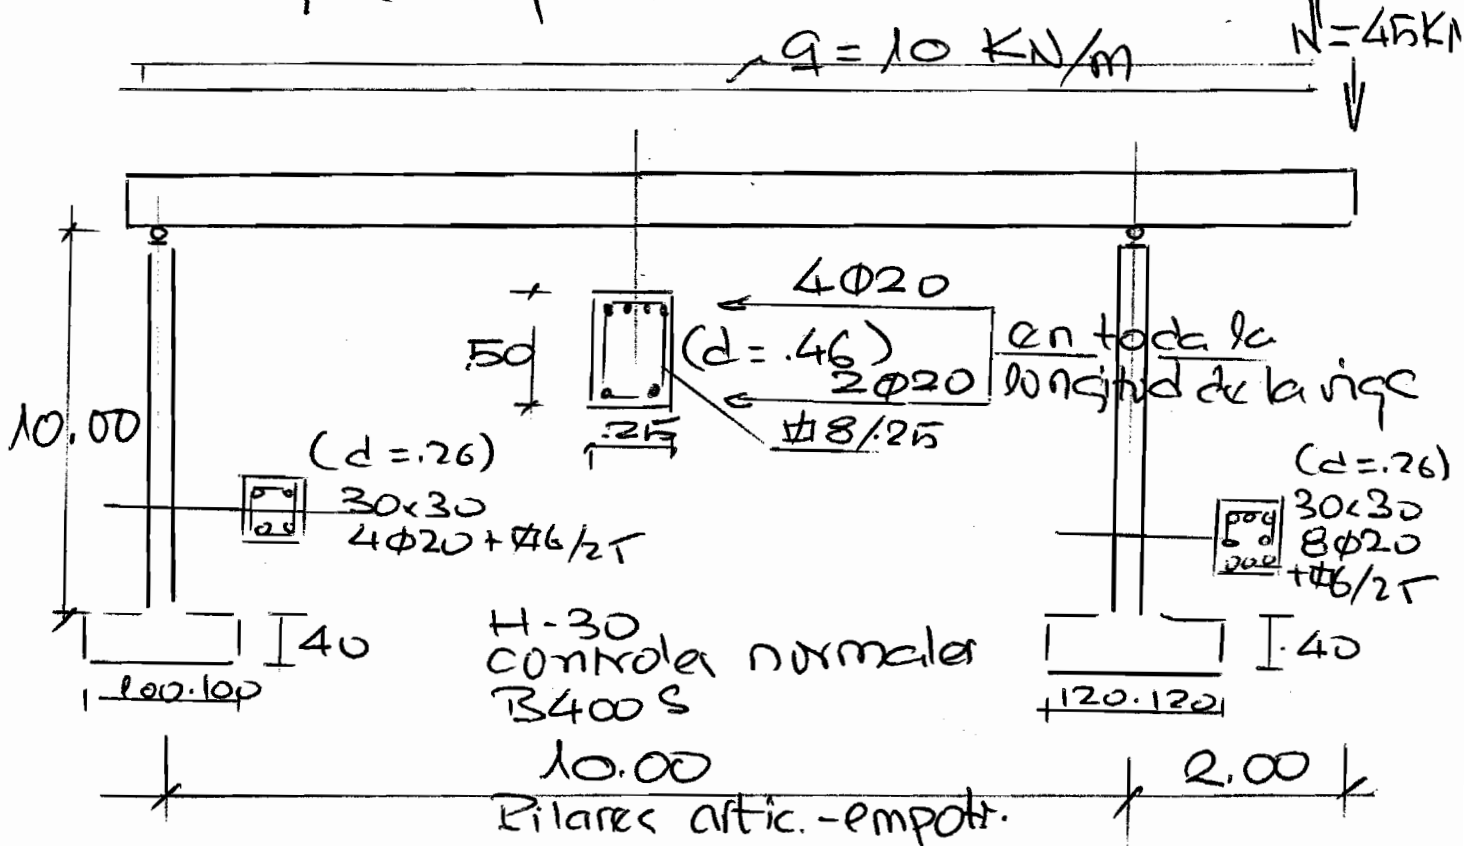 q = 10 KN/m
N=45KN
4Φ20
(d=.46)
2Φ20
en toda la
longitud de la viga
.50
.25
#8/.25
10.00
(d=.26)
30x30
4Φ20+#6/25
(d=.26)
30x30
8Φ20
+#6/25
40
H-30
controles normales
B400S
.40
100.100
120.120
10.00
2.00
Pilares artic.-empotr.